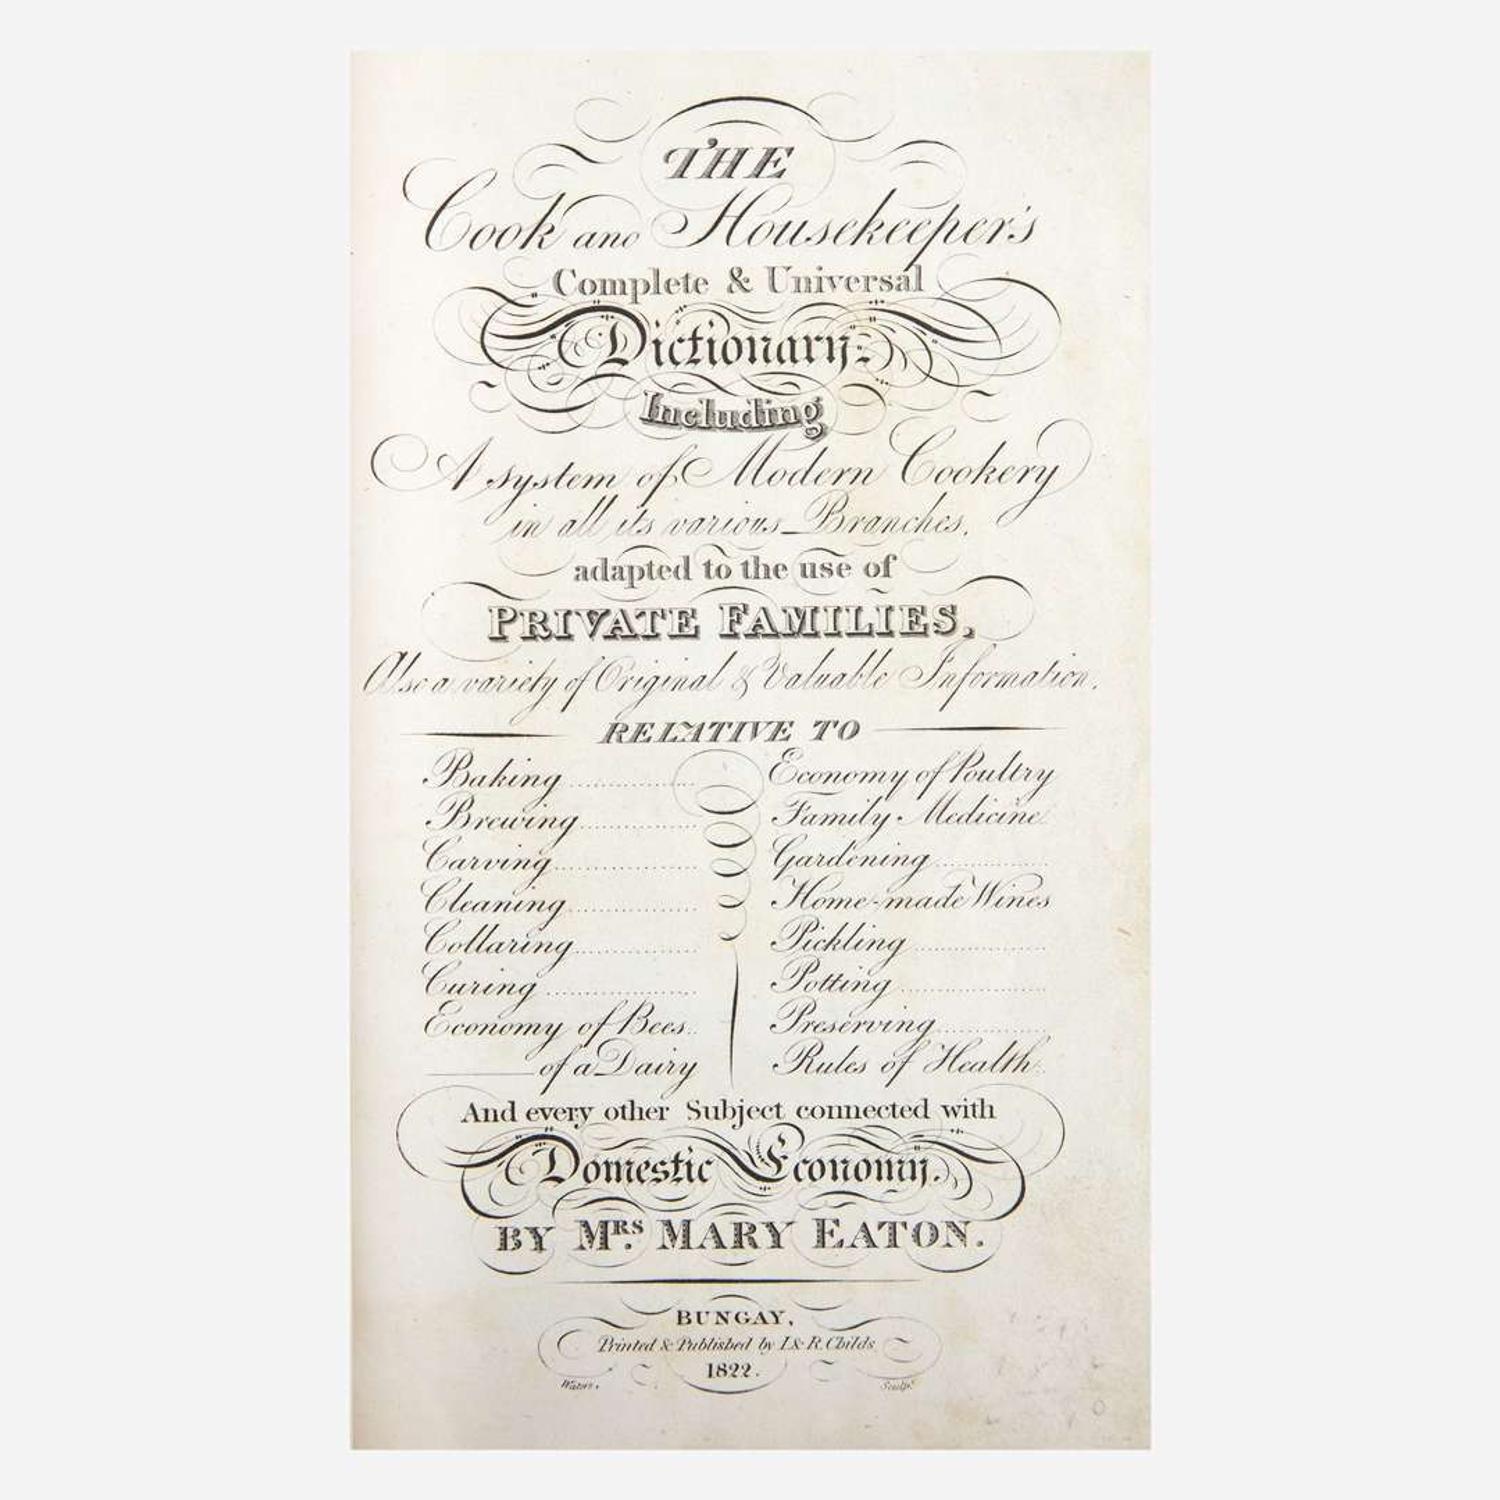 THE
Cook and Housekeeper's
Complete & Universal
Dictionary.
Including
A system of Modern Cookery
in all its various Branches,
adapted to the use of
PRIVATE FAMILIES,
Also a variety of Original & Valuable Information.
RELATIVE TO
Baking
Brewing
Carving
Cleaning
Collaring
Curing
Economy of Bees
of a Dairy
Economy of Poultry
Family Medicine
Gardening
Home-made Wines
Pickling
Potting
Preserving
Rules of Health
And every other Subject connected with
Domestic Economy.
BY MRS. MARY EATON.
BUNGAY,
Printed & Published by J. & R. Childs
1822.
Waters, Sculpt.